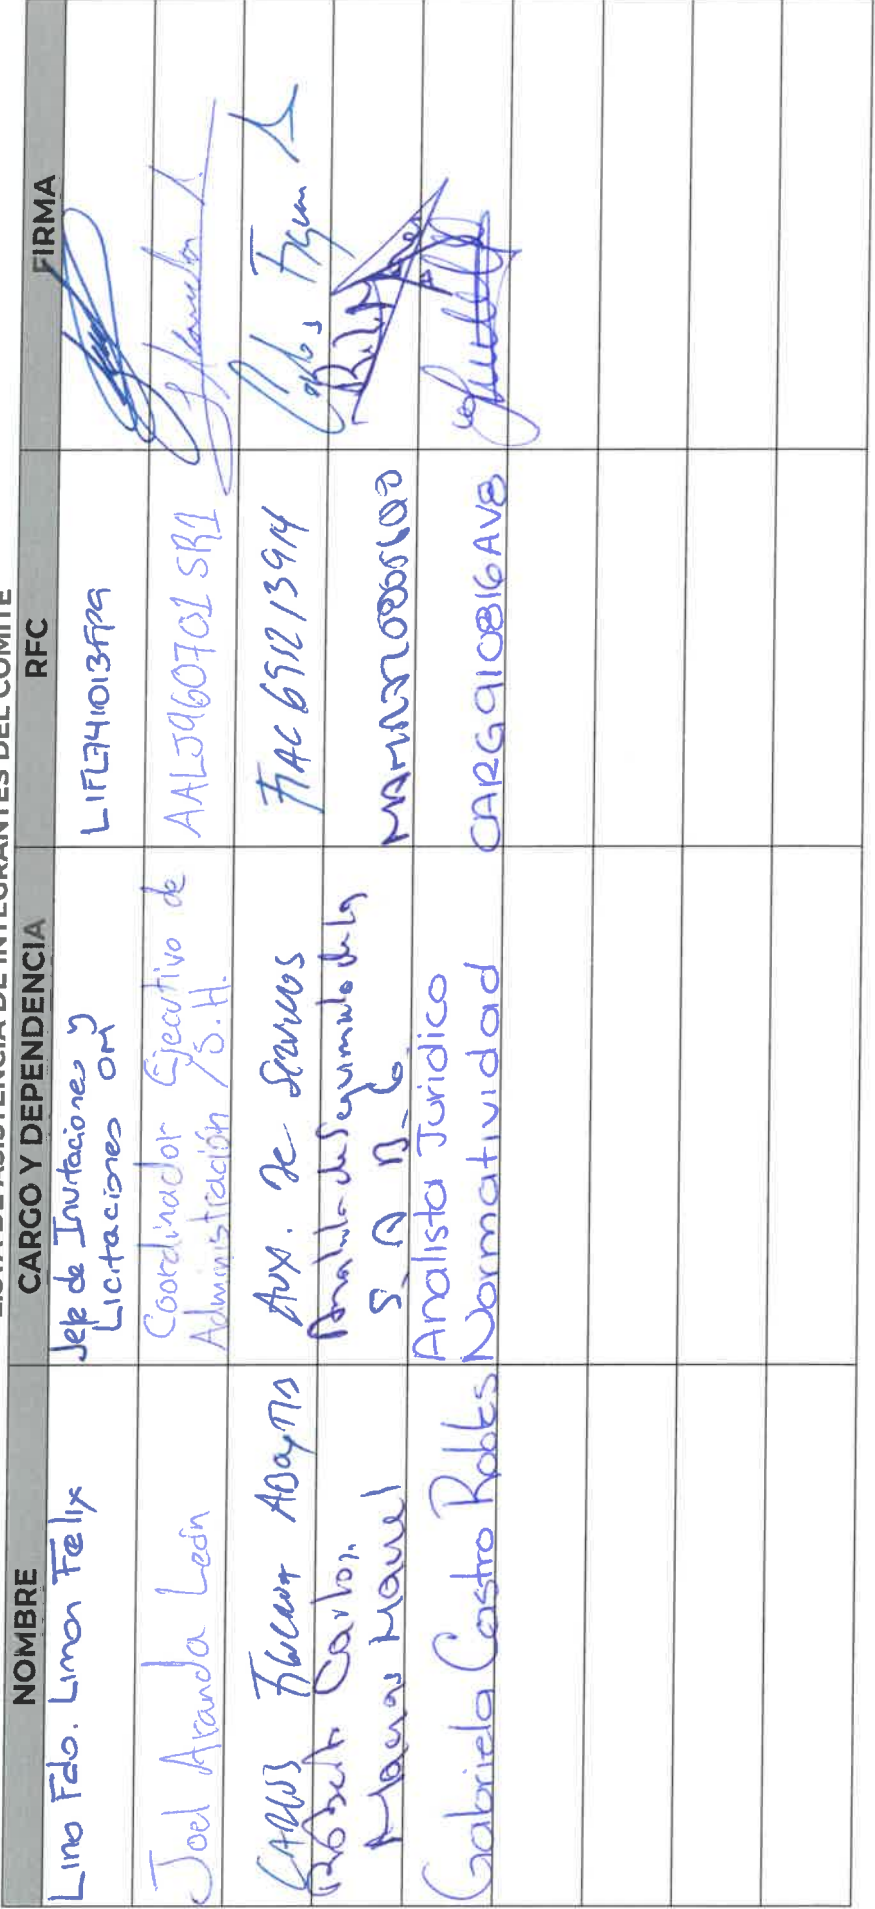 LISTA DE ASISTENCIA DE INTEGRANTES DEL COMITÉ
NOMBRE CARGO Y DEPENDENCIA RFC FIRMA
Lino Fdo. Limon Felix Jefe de Invitaciones y Licitaciones OM LIFL741013FPA
Joel Aranda León Coordinador Ejecutivo de Administración /S.H. AALJ960701SR1
CARLOS Figueroa ABoytia Aux. De Servicios FIAC691213914 Carlos Figueroa
Roberto Carlos Manuel Analista de Seguimiento de la S_A_B_G_
Gabriela Castro Robles Analista Juridico Normatividad CARG910816AV8